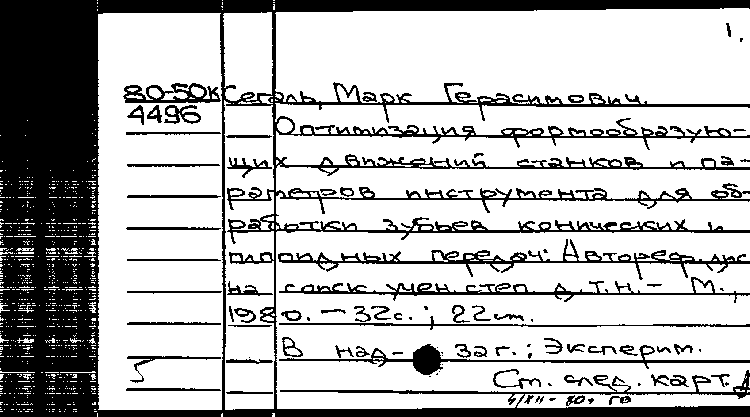 1.
80-50к Сегаль, Марк Герасимович.
4496
Оптимизация формообразую-
щих движений станков и па-
раметров инструмента для об-
работки зубьев конических и
гипоидных передач: Автореф. дис.
на соиск. учен. степ. д.т.н. - М.,
1980. - 32с.; 22см.
В над- заг.: Эксперим.
См. след. карт.